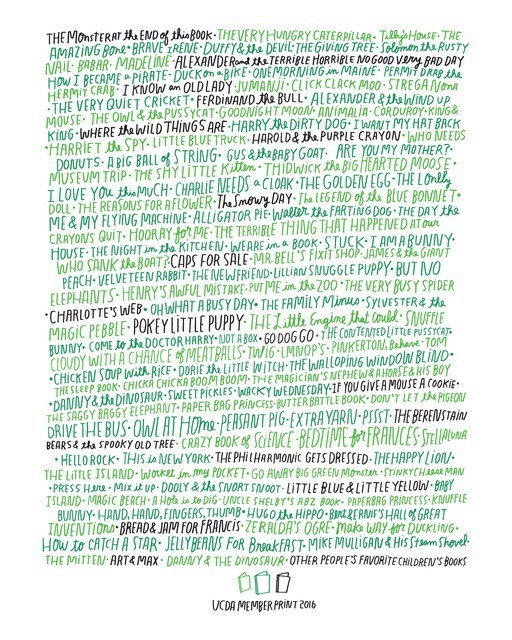 THE MONSTER AT THE END OF THIS BOOK • THE VERY HUNGRY CATERPILLAR • Tilly's House • THE
AMAZING BONE • BRAVE IRENE • DUFFY & the DEVIL • THE GIVING TREE • Solomon the RUSTY
NAIL • BABAR • MADELINE • ALEXANDER and the TERRIBLE HORRIBLE NO GOOD VERY BAD DAY
HOW I BECAME A PIRATE • DUCK ON A BIKE • ONE MORNING in MAINE • PERMIT DRAB the
HERMIT CRAB • I KNOW AN OLD LADY • JUMANJI • CLICK CLACK MOO • STREGA NONA
• THE VERY QUIET CRICKET • FERDINAND THE BULL • ALEXANDER & the WIND UP
MOUSE • THE OWL & the PUSSYCAT • GOODNIGHT MOON • ANIMALIA • CORDUROY • KING &
KING • WHERE THE WILD THINGS ARE • HARRY THE DIRTY DOG • I WANT MY HAT BACK
• HARRIET the SPY • LITTLE BLUE TRUCK • HAROLD & the PURPLE CRAYON • WHO NEEDS
DONUTS • A BIG BALL of STRING • GUS & the BABY GOAT • ARE YOU MY MOTHER? •
MUSEUM TRIP • THE SHY LITTLE Kitten • THIDWICK the BIG HEARTED MOOSE •
I LOVE YOU this MUCH • CHARLIE NEEDS a CLOAK • THE GOLDEN EGG • THE LONELY
DOLL • THE REASONS FOR A FLOWER • The Snowy DAY • THE LEGEND OF the BLUE BONNET •
ME & MY FLYING MACHINE • ALLIGATOR PIE • Walter the FARTING DOG • THE DAY the
CRAYONS QUIT • HOORAY for ME • THE TERRIBLE THING THAT HAPPENED AT our
HOUSE • THE NIGHT in the KITCHEN • WE ARE in a BOOK • STUCK • I AM A BUNNY •
WHO SANK the BOAT? • CAPS FOR SALE • MR. BELL'S FIXIT SHOP • JAMES & the GIANT
PEACH • VELVETEEN RABBIT • THE NEW FRIEND • LILLIAN SNUGGLE PUPPY • BUT NO
ELEPHANTS • HENRY'S AWFUL MISTAKE • PUT ME in the ZOO • THE VERY BUSY SPIDER
• CHARLOTTE'S WEB • OH WHAT A BUSY DAY • THE FAMILY Minus • SYLVESTER & the
MAGIC PEBBLE • POKEY LITTLE PUPPY • THE Little Engine that Could • SNUFFLE
BUNNY • COME to the DOCTOR HARRY • NOT A BOX • GO DOG GO • THE CONTENTED LITTLE PUSSYCAT •
CLOUDY WITH A CHANCE of MEATBALLS • TWIG • LMNOP'S • PINKERTON, Behave • TOM
• CHICKEN SOUP WITH RICE • DORIE the LITTLE WITCH • THE WALLOPING WINDOW BLIND •
THE SLEEP BOOK • CHICKA CHICKA BOOM BOOM • THE MAGICIAN'S NEPHEW • A HORSE & HIS BOY
• DANNY & the DINOSAUR • SWEET PICKLES • WACKY WEDNESDAY • IF YOU GIVE A MOUSE A COOKIE •
THE SAGGY BAGGY ELEPHANT • PAPER BAG PRINCESS • BUTTER BATTLE BOOK • DON'T LET the PIGEON
DRIVE THE BUS • OWL AT HOME • PEASANT PIG • EXTRA YARN • PSSST • THE BERENSTAIN
BEARS & the SPOOKY OLD TREE • CRAZY BOOK of SCIENCE • BEDTIME for FRANCES • STELLALUNA
• HELLO ROCK • THIS is NEW YORK • THE PHILHARMONIC GETS DRESSED • THE HAPPY LION •
THE LITTLE ISLAND • Worker in my POCKET • GO AWAY BIG GREEN Monster • STINKY CHEESE MAN
• PRESS Here • Mix it up • DOOLY & the SNORT SNOOT • LITTLE BLUE & LITTLE YELLOW • BABY
ISLAND • MAGIC BEACH • A Hole is to DIG • UNCLE SHELBY'S ABZ BOOK • PAPERBAG PRINCESS • KNUFFLE
BUNNY • HAND, HAND, FINGERS, THUMB • HUGO the HIPPO • Bert BERNIE'S HALL of GREAT
INVENTIONS • BREAD & JAM FOR FRANCIS • ZERALDA'S OGRE • MAKE WAY for DUCKLING •
HOW to CATCH A STAR • JELLYBEANS FOR BREAKFAST • MIKE MULLIGAN & HIS STEAM SHOVEL •
THE MITTEN • ART & MAX • DANNY & THE DINOSAUR • OTHER PEOPLE'S FAVORITE CHILDREN'S BOOKS
UCDA MEMBER PRINT 2016